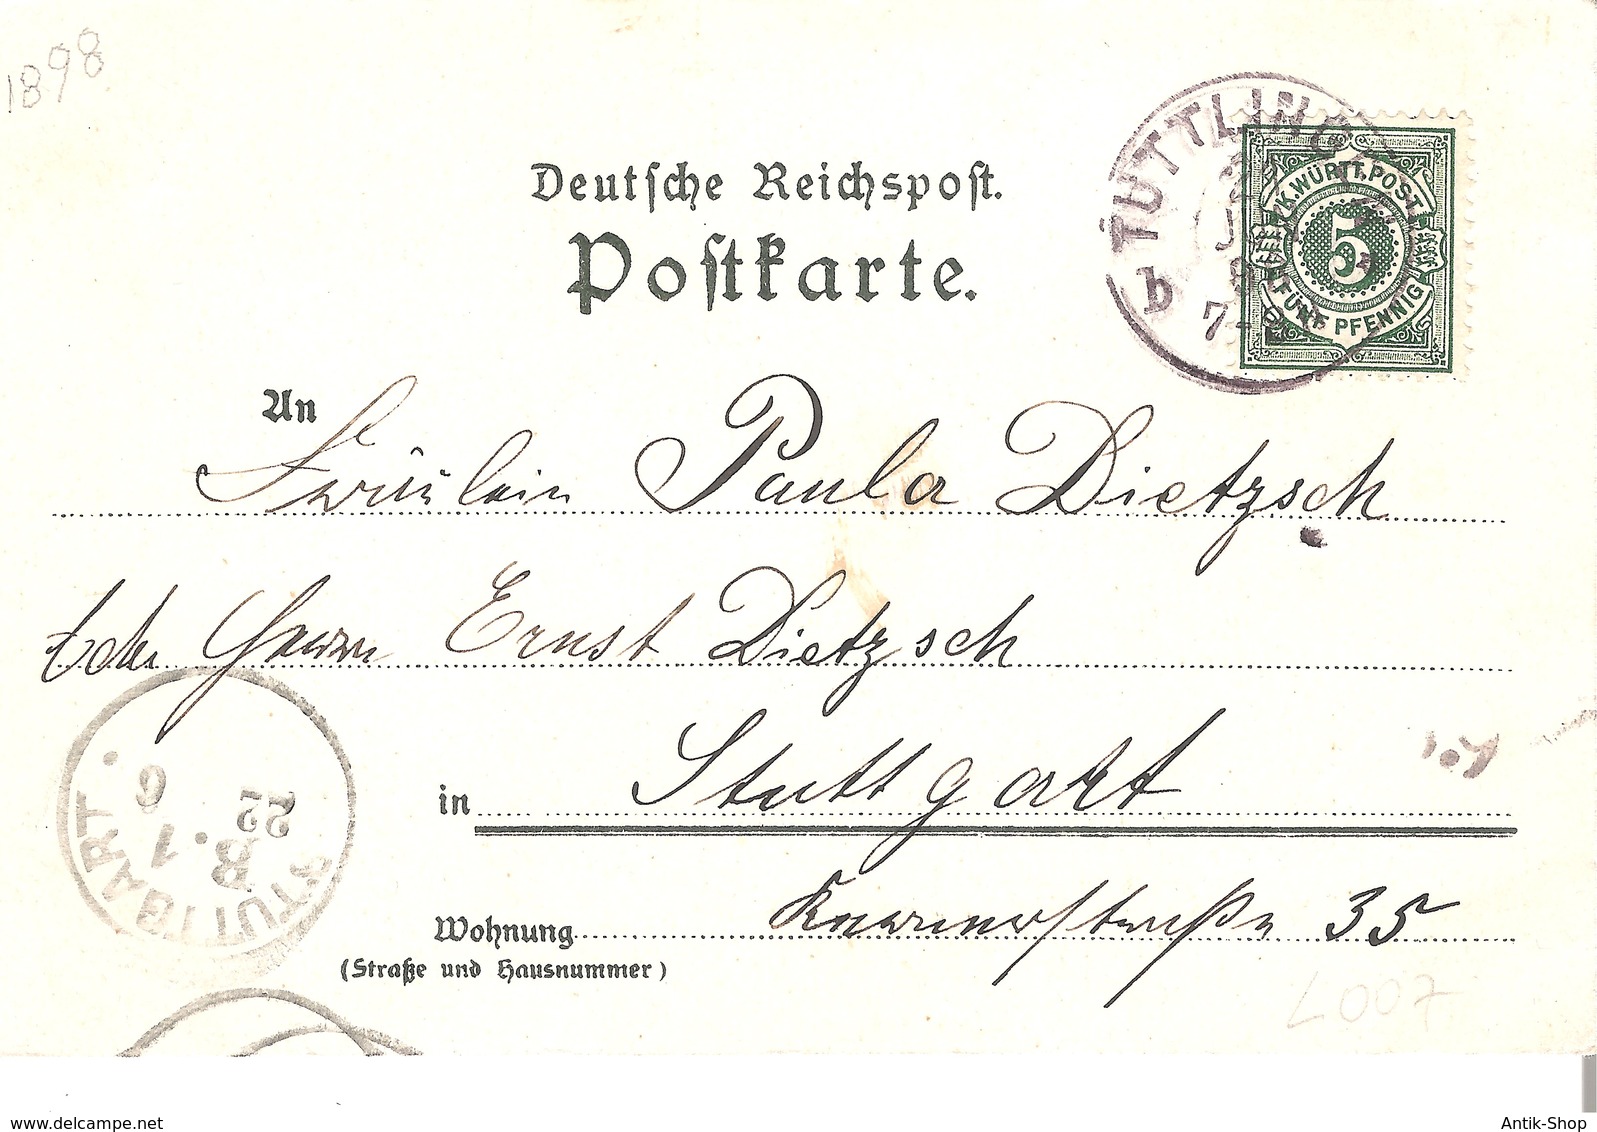 1898
Deutsche Reichspost.
Postkarte.
TUTTLING
b
7-8
K.WÜRTT.POST
5
FÜNF PFENNIG
An Fräulein Paula Dietzsch
Herrn Ernst Dietzsch
in Stuttgart
Wohnung 35
(Straße und Hausnummer)
STUTTGART.
B.
22 1 6
L007
delcampe.net
Antik-Shop